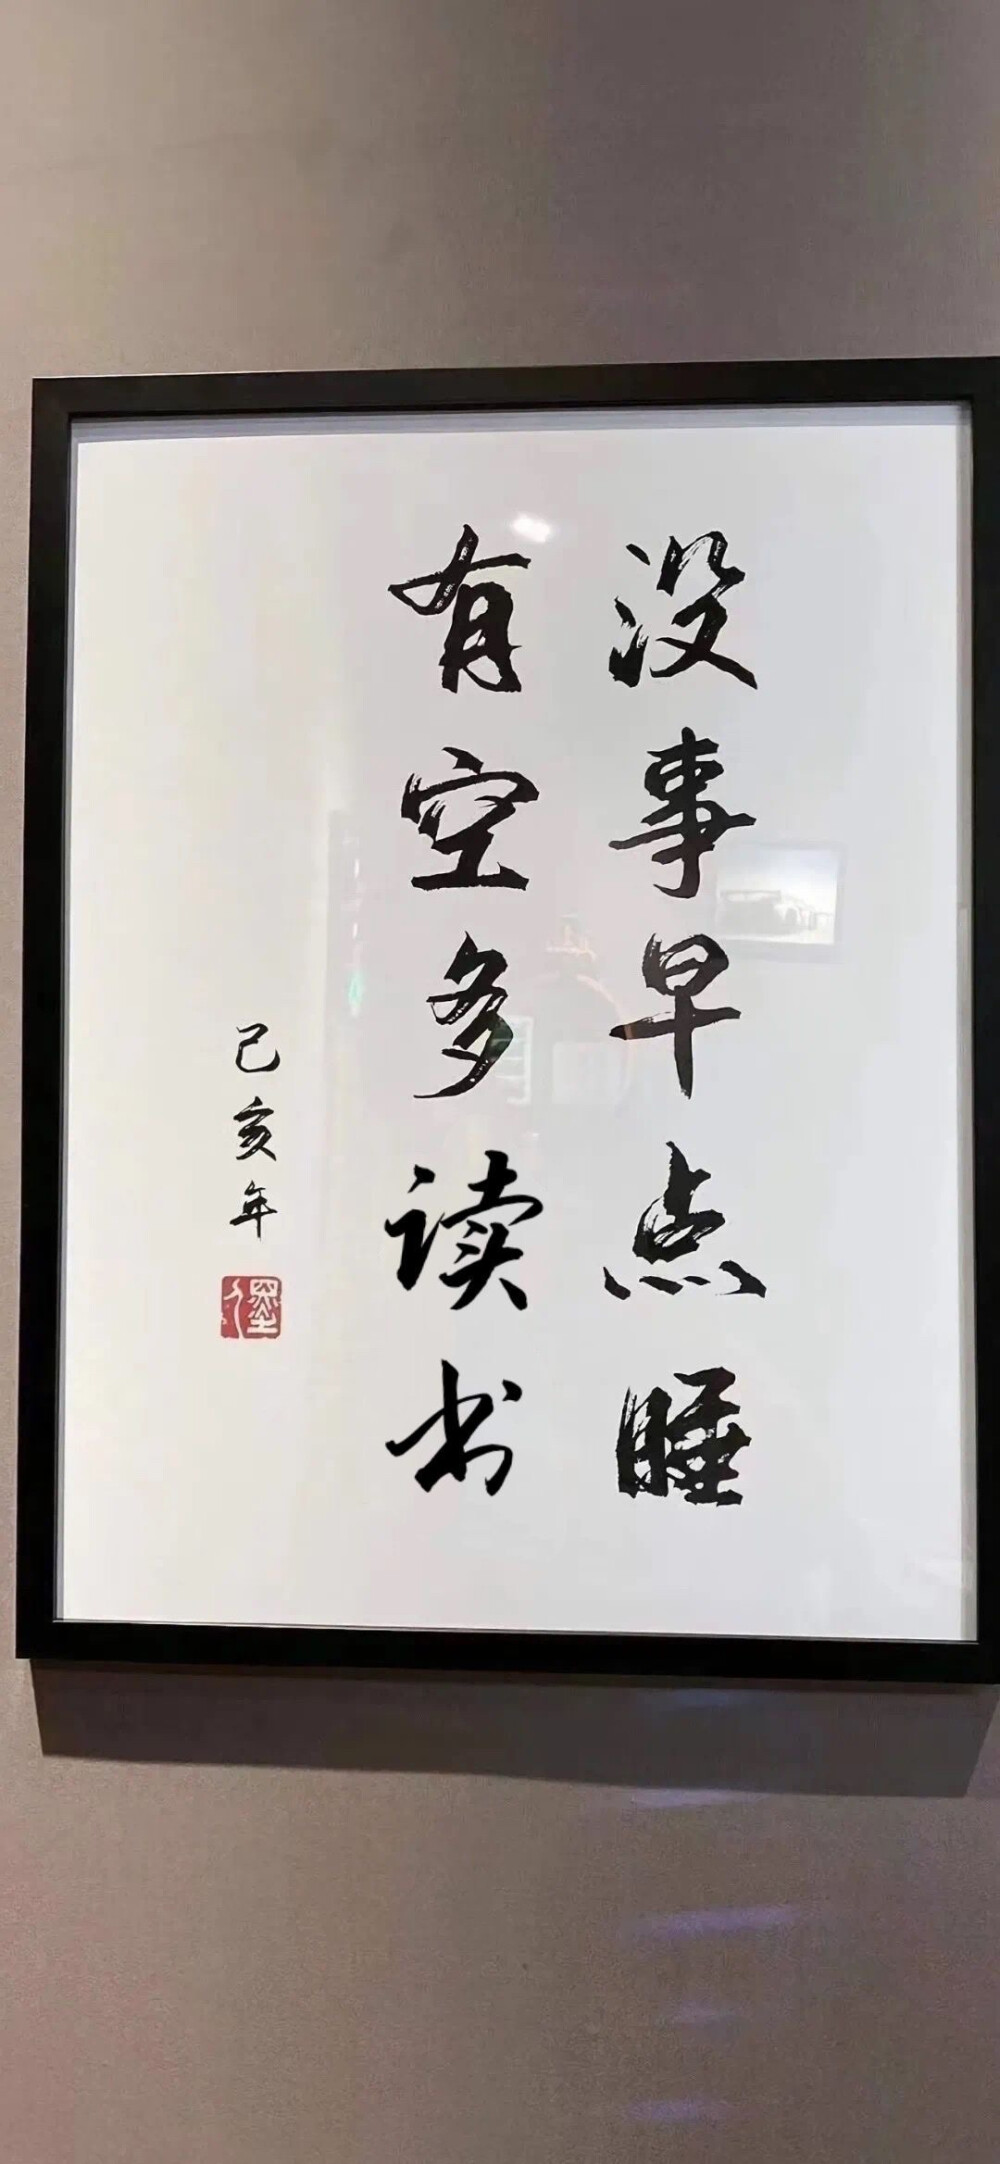 没事早点睡
有空多读书
己亥年